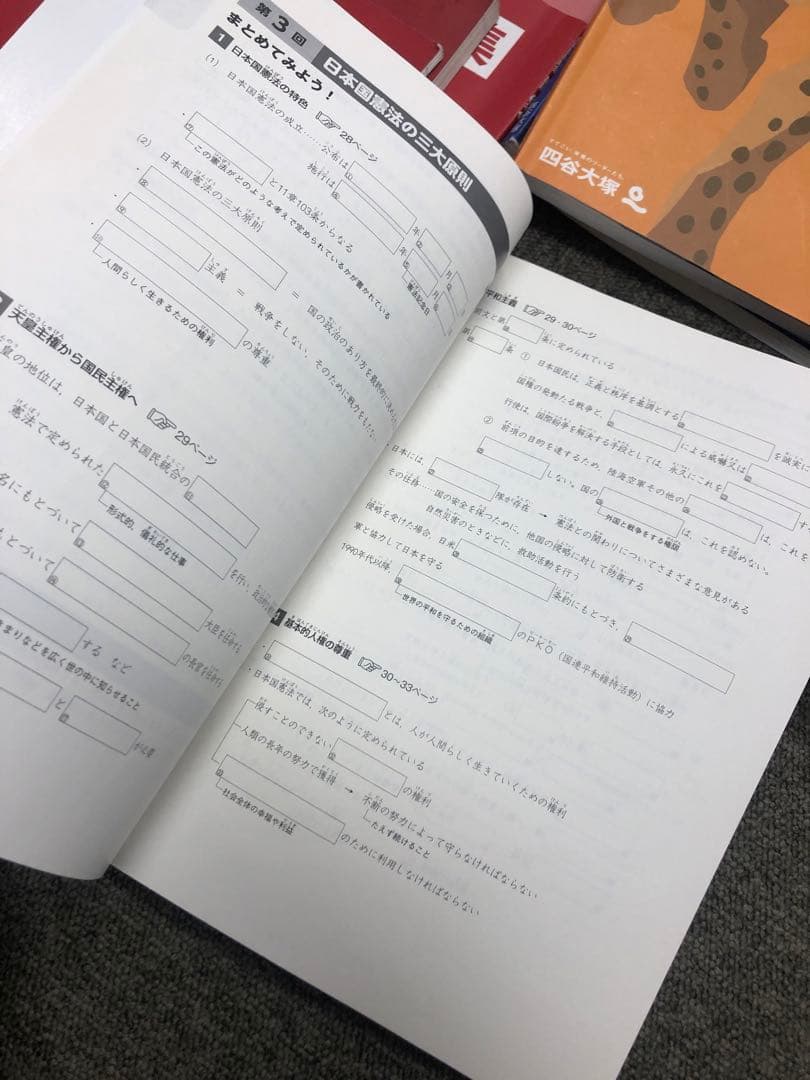 第3回 日本国憲法の三大原則
まとめてみよう！
1 日本国憲法の特色 28ページ
(1) 日本国憲法の成立……公布は 年 月
施行は 年 月
憲法記念日
と11章103条からなる
この憲法がどのような考えで定められているかが書かれている
(2) 日本国憲法の三大原則
・ = 国の政治のあり方を最終的に決め
・ 主義 = 戦争をしない、そのために戦力をもたない
・ の尊重
人間らしく生きるための権利
天皇主権から国民主権へ 29ページ
皇の地位は、日本国と日本国民統合の
憲法で定められた
形式的、儀礼的な仕事
名にもとづいて を行い、政治的
もとづいて 大臣を任命する
の長官を任命する
する など
きまりなどを広く世の中に知らせること
と が必要
平和主義 29・30ページ
前文と第 条に定められている
第 条 ① 日本国民は、正義と秩序を基調とする を誠実に
国権の発動たる戦争と、 による威嚇又は
行使は、国際紛争を解決する手段としては、永久にこれを
② 前項の目的を達するため、陸海空軍その他の は、これを
しない。国の は、これを認めない。
外国と戦争をする権限
日本には、 隊が存在 → 憲法との関わりについてさまざまな意見がある
その任務……国の安全を保つために、他国の侵略に対して防衛する
自然災害のときなどに、救助活動を行う
侵略を受けた場合、日米 条約にもとづき、
軍と協力して日本を守る
1990年代以降、 のPKO（国連平和維持活動）に協力
世界の平和を守るための組織
4 基本的人権の尊重 30〜33ページ
・ とは、人が人間らしく生きていくための権利
・日本国憲法では、次のように定められている
侵すことのできない の権利
人類の長年の努力で獲得 → 不断の努力によって守らなければならない
たえず続けること
のために利用しなければならない
社会全体の幸福や利益
四谷大塚